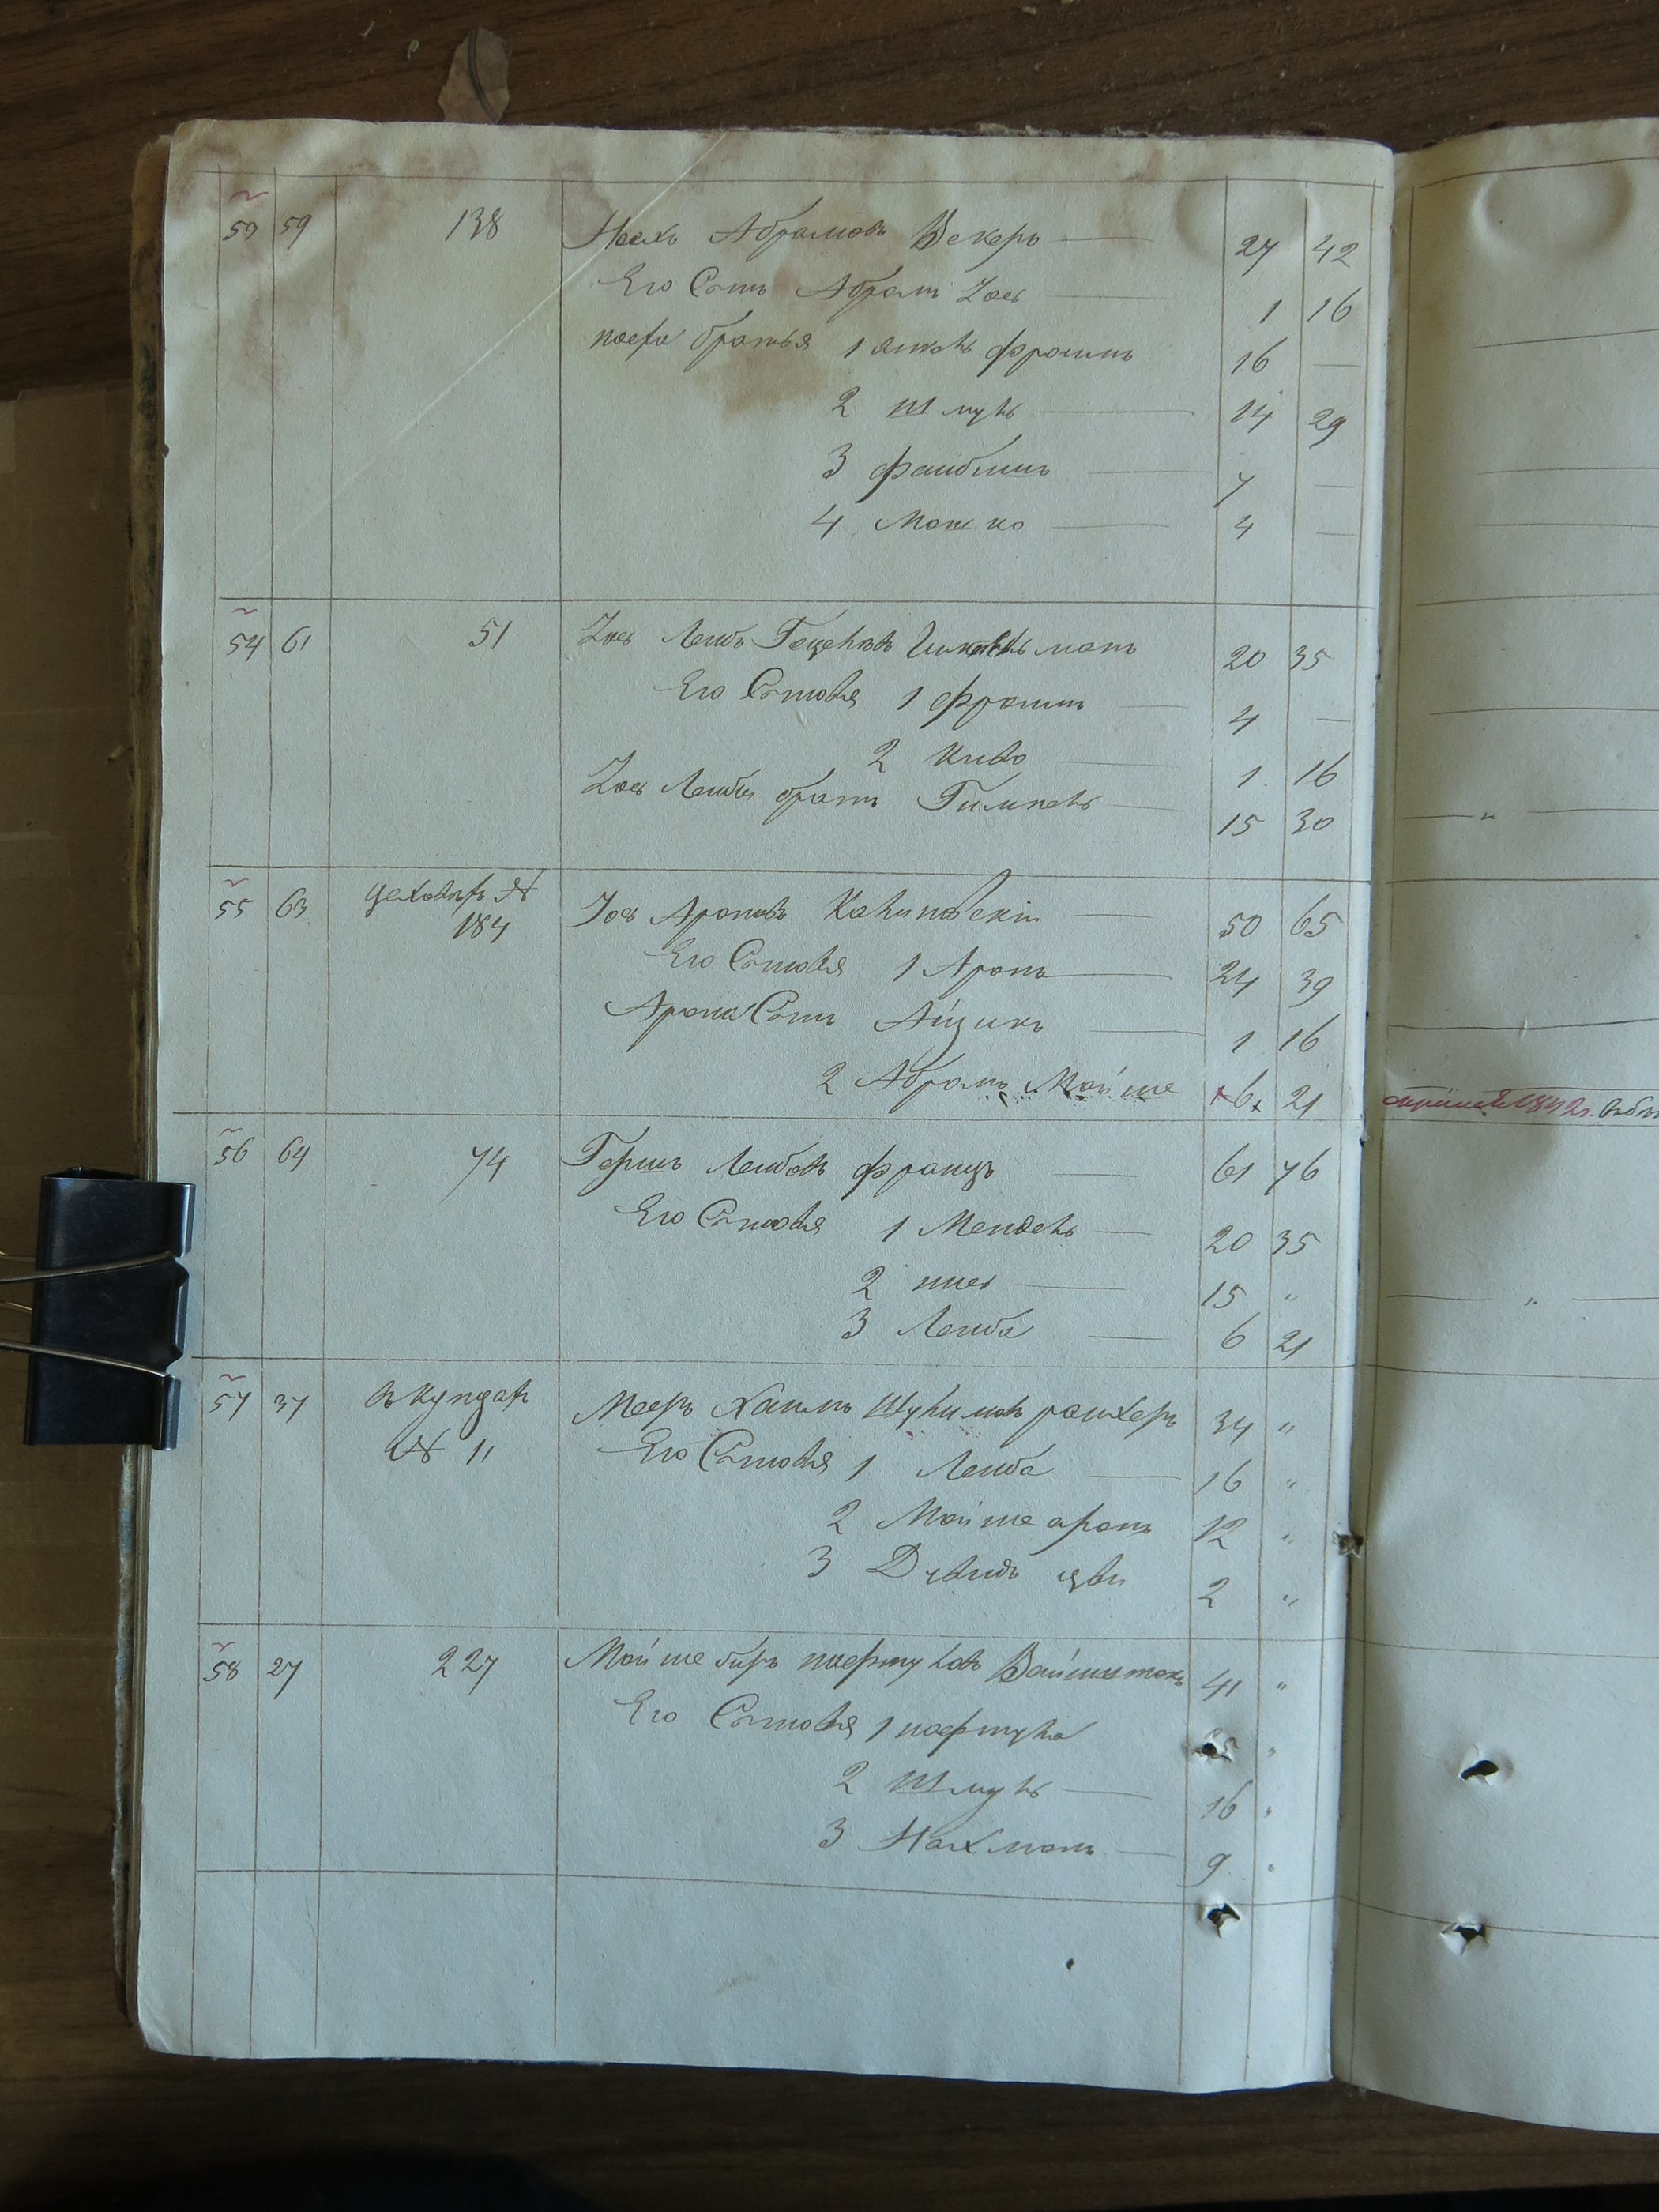 53 59 138 Ноехъ Абрамовъ Векеръ — 27 42
Его Сынъ Абрамъ Зось — 1 16
Ноеха братья 1 Янкель Фроимъ 16 —
2 Шмуль — 14 29
3 Файбишъ — 7 —
4 Мошко — 4 —
54 61 51 Зось Лейбъ Гецелевъ 20 35
Его Сыновья 1 Фроимъ — 4 —
2 Кива — 1 16
Зось Лейбы братъ Гимпель — 15 30 — " —
55 63 цеховыхъ № 184 Зось Ароновъ Калиновскій — 50 65
Его Сыновья 1 Аронъ — 24 39
Арона Сынъ Айзикъ — 1 16
2 Абрамъ Мойше 6 21
56 64 74 Гершъ Лейбовъ Францъ — 61 76
Его Сыновья 1 Мендель — 20 35
2 — 15 " — " —
3 Лейба — 6 21
57 37 № 11 Мееръ Хаимъ Шулимовъ Райхеръ 34 "
Его Сыновья 1 Лейба — 16 "
2 Мойше Аронъ 12 "
3 Дувидъ Цви 2 "
58 27 227 Мойше Беръ Нафтуловъ Вайншток 41 "
Его Сыновья 1 Нафтула "
2 Шмуль — 16 "
3 Нахманъ — 9 "